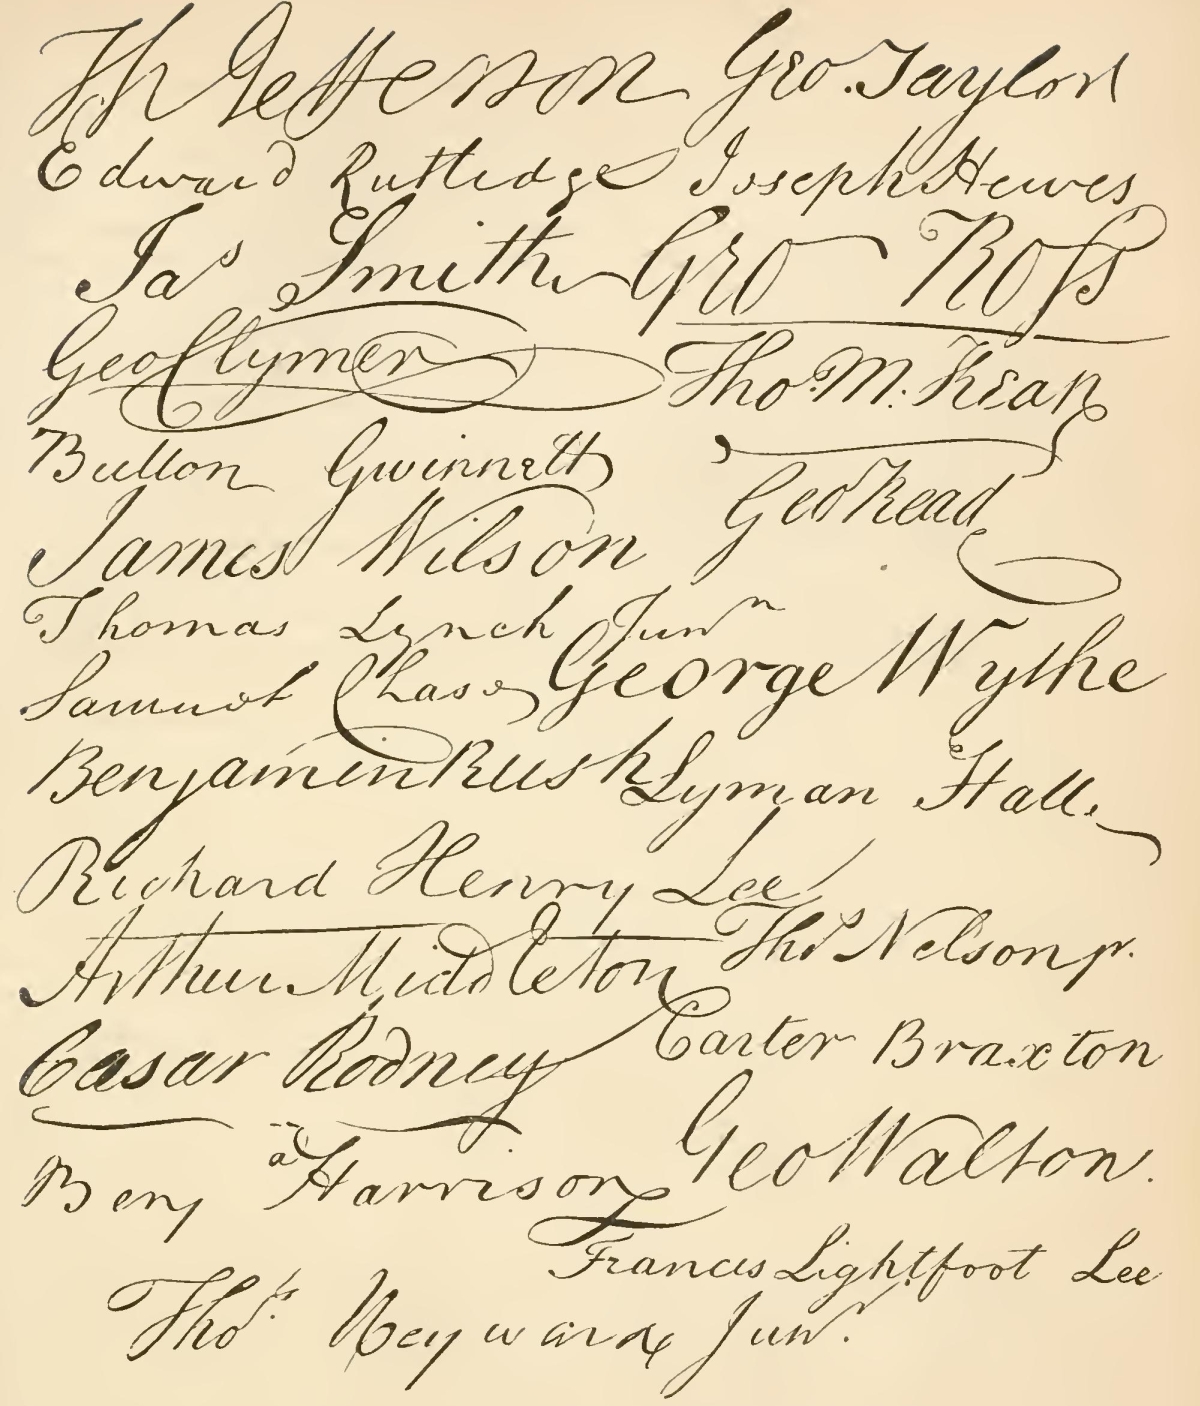 Th Jefferson Geo. Taylor
Edward Rutledge Joseph Hewes
Jas Smith Geo Ross
Geo Clymer Tho M:Kean
Button Gwinnett Geo Read
James Wilson
Thomas Lynch Junr
Samuel Chase George Wythe
Benjamin Rush Lyman Hall.
Richard Henry Lee
Arthur Middleton Thos Nelson jr.
Cæsar Rodney Carter Braxton
Benj a Harrison Geo Walton.
Francis Lightfoot Lee
Thos Heyward Junr.